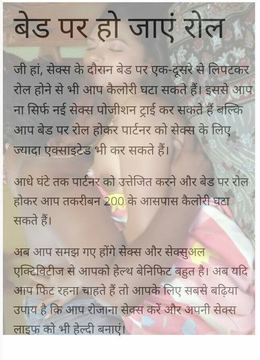 बेड पर हो जाएं रोल
जी हां, सेक्स के दौरान बेड पर एक-दूसरे से लिपटकर
रोल होने से भी आप कैलोरी घटा सकते हैं। इससे आप
ना सिर्फ नई सेक्स पोजीशन ट्राई कर सकते हैं बल्कि
आप बेड पर रोल होकर पार्टनर को सेक्स के लिए
ज्यादा एक्साइटेड भी कर सकते हैं।
आधे घंटे तक पार्टनर को उत्तेजित करने और बेड पर रोल
होकर आप तकरीबन 200 के आसपास कैलोरी घटा
सकते हैं।
अब आप समझ गए होंगे सेक्स और सेक्सुअल
एक्टिविटीज से आपको हेल्थ बेनिफिट बहुत है। अब यदि
आप फिट रहना चाहते हैं तो आपके लिए सबसे बढ़िया
उपाय है कि आप रोजाना सेक्स करें और अपनी सेक्स
लाइफ को भी हेल्दी बनाएं।